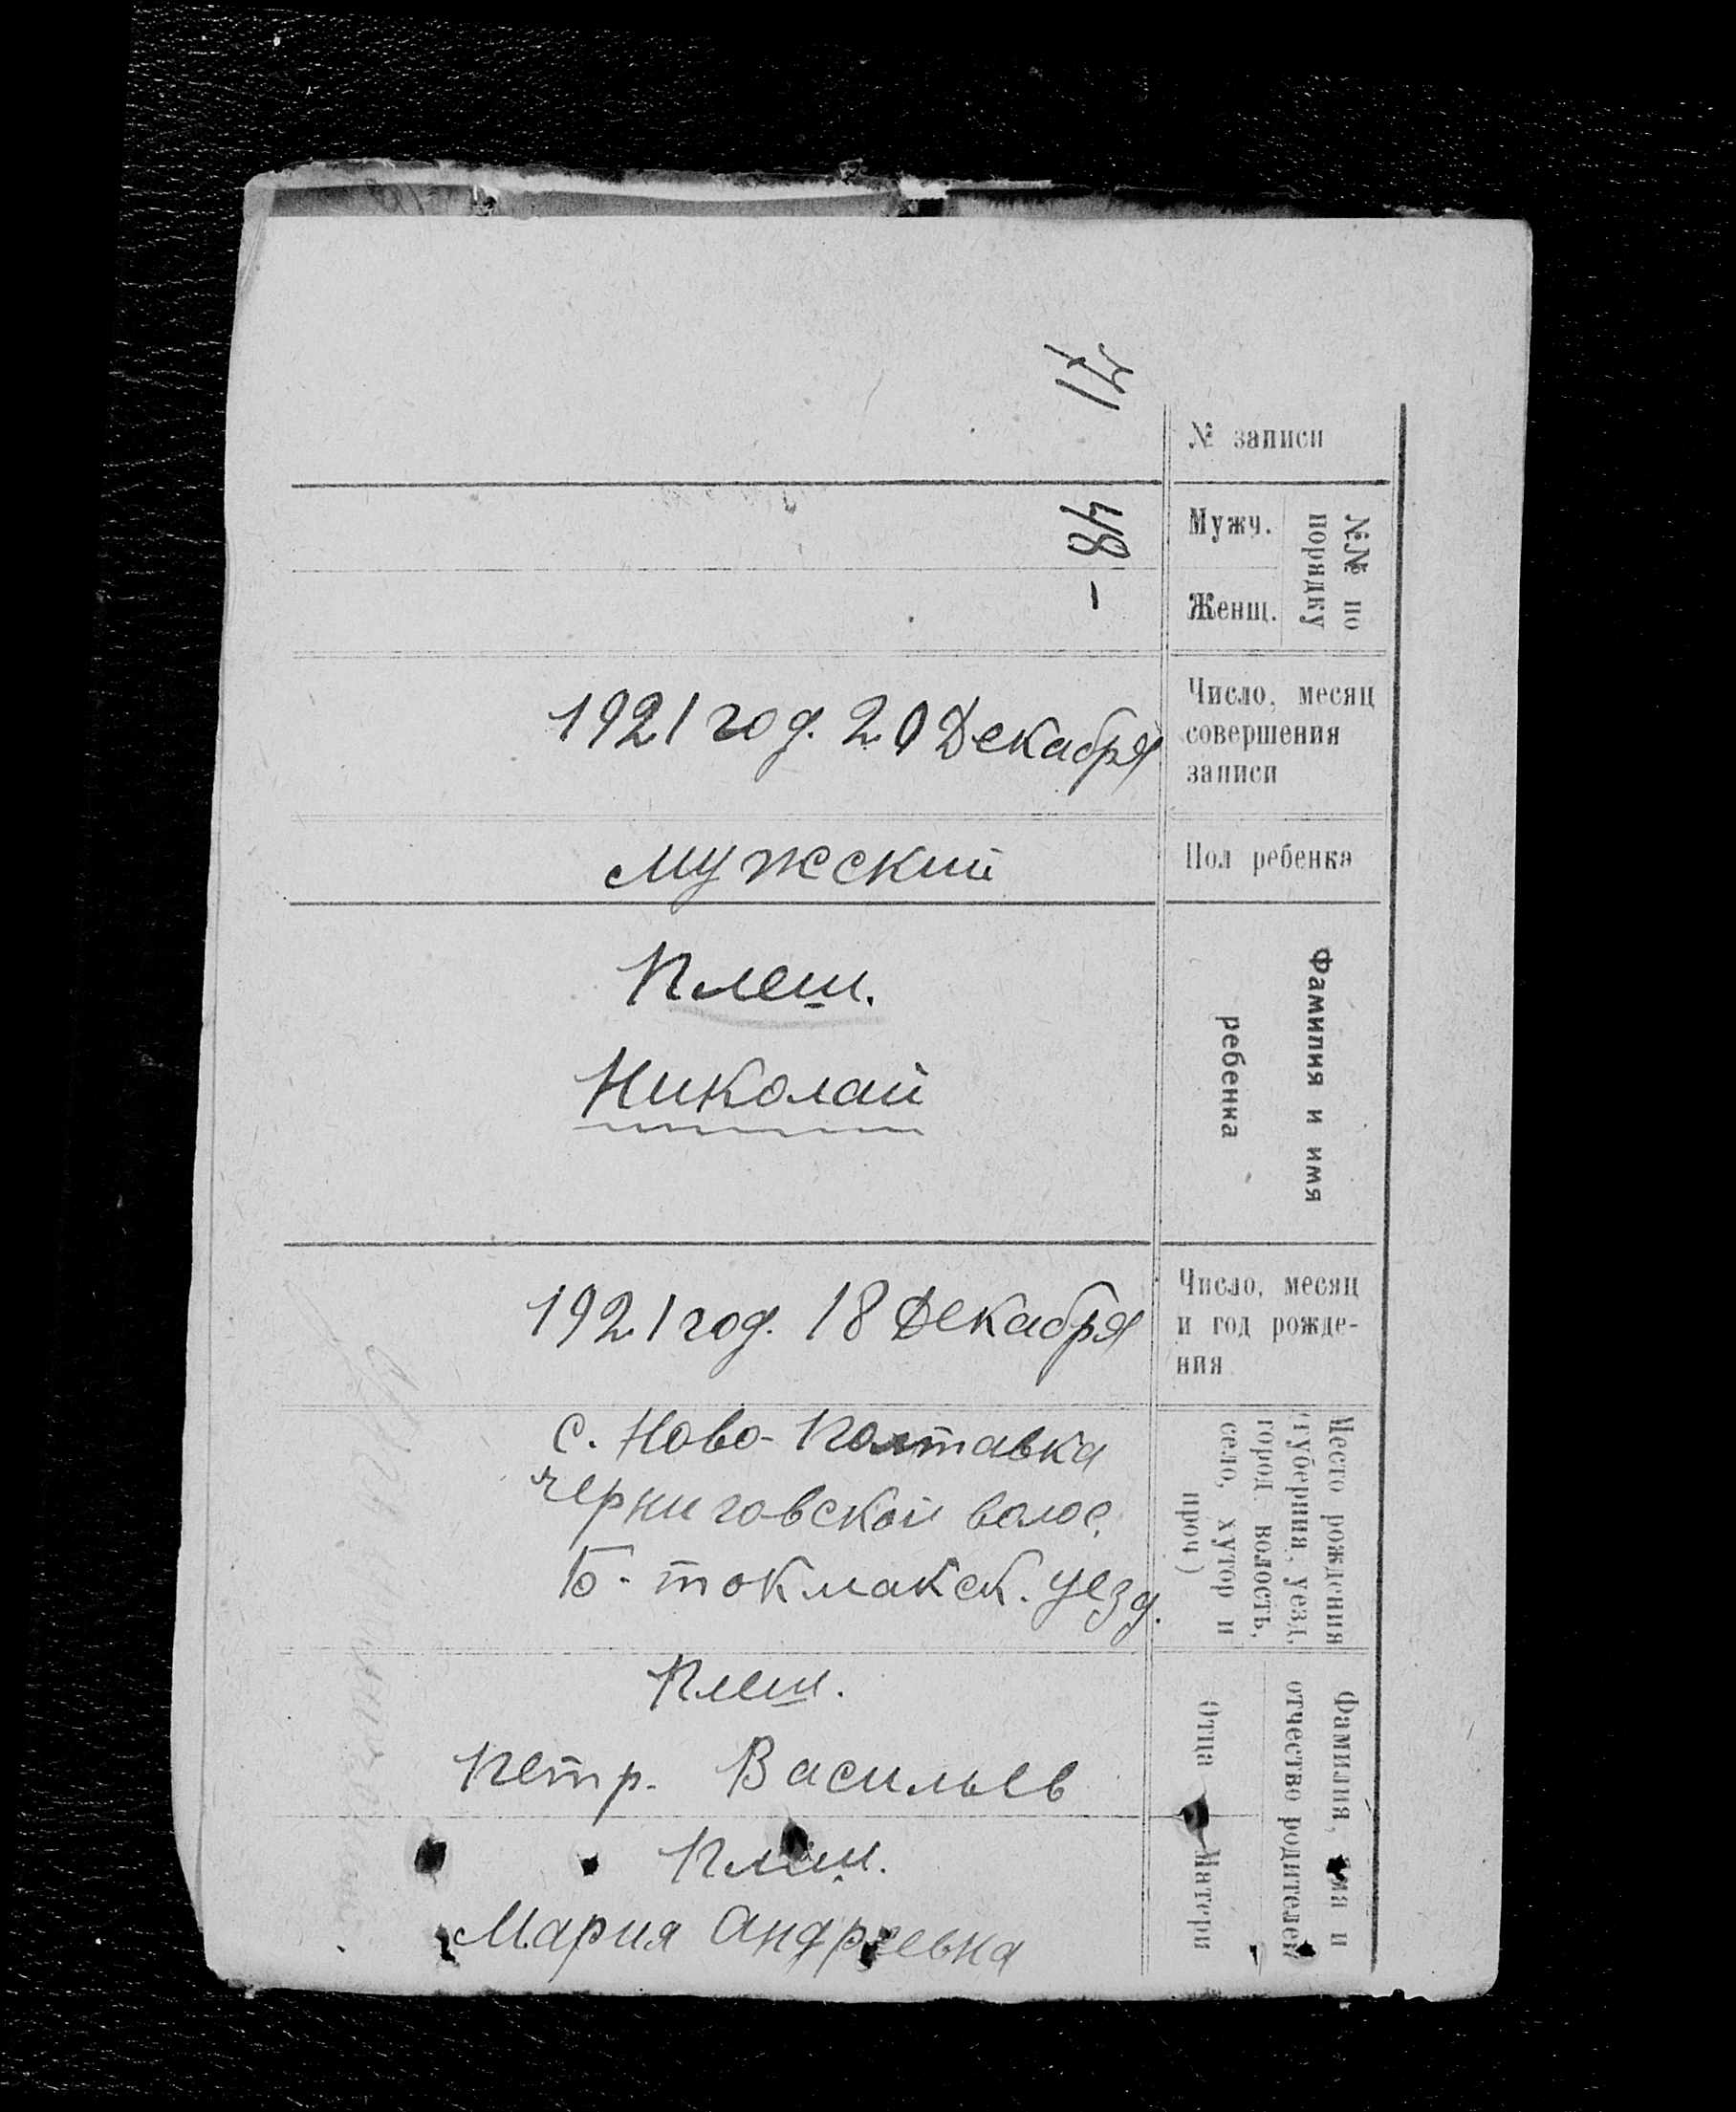 71
№ записи
48
Мужч.
-
Женщ.
№№ по
порядку
1921 год. 20 Декабря
Число, месяц
совершения
записи
мужский
Пол ребенка
Плеш.
Николай
Фамилия и имя
ребенка
1921 год. 18 Декабря
Число, месяц
и год рожде-
ния
с. Ново-Полтавка
черниговской волос.
Б-токмакск. уезд.
Место рождения
(губерния, уезд,
город. волость,
село, хутор и
проч)
Плеш.
Петр. Васильев
Отца
Плеш.
Мария Андреевна
Матери
Фамилия, имя и
отчество родителей